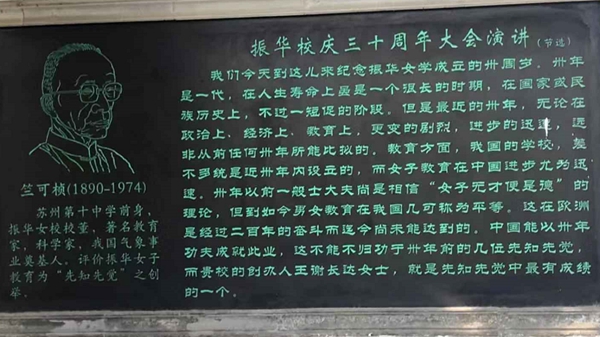 振华校庆三十周年大会演讲(节选)
我们今天到这儿来纪念振华女学成立的卅周岁。卅年
是一代，在人生寿命上虽是一个很长的时期，在国家或民
族历史上，不过一短促的阶段。但是最近的卅年，无论在
政治上、经济上、教育上，更变的剧烈，进步的迅速，远
非从前任何卅年所能比拟的。教育方面，我国的学校，差
不多统是近卅年内设立的，而女子教育在中国进步尤为迅
速。卅年以前一般士大夫尚是相信“女子无才便是德”的
理论，但到如今男女教育在我国几可称为平等。这在欧洲
是经过二百年的奋斗而迄今尚未能达到的，中国能以卅年
功夫成就此业，这不能不归功于卅年前的几位先知先觉，
而贵校的创办人王谢长达女士，就是先知先觉中最有成绩
的一个。
竺可桢(1890-1974)
苏州第十中学前身，
振华女校校董，著名教育
家、科学家，我国气象事
业奠基人。评价振华女子
教育为“先知先觉”之创
举。